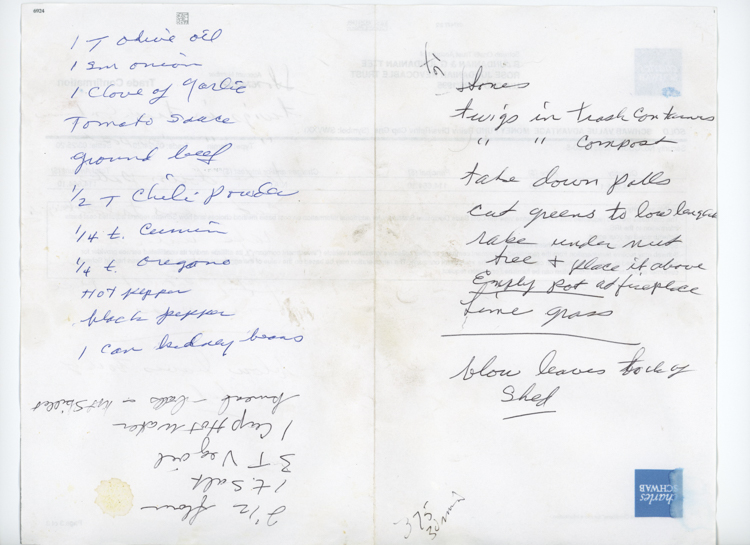 6924
1 T olive oil
1 sm onion
1 Clove of garlic
Tomato sauce
ground beef
1/2 T Chili powder
1/4 t. Cumin
1/4 t. Oregano
Hot pepper
black pepper
1 can kidney beans
2 1/2 flour
1 t. Salt
3 T Veg oil
1 Cup Hot water
Kneed - balls - Hot Skillet
stones
twigs in trash containers
" " compost
take down polls
cut greens to low length
rake under nut
tree + place it above
Empty pot at fireplace
lime grass
blow leaves back of
Shed
375
30 min
charles
SCHWAB